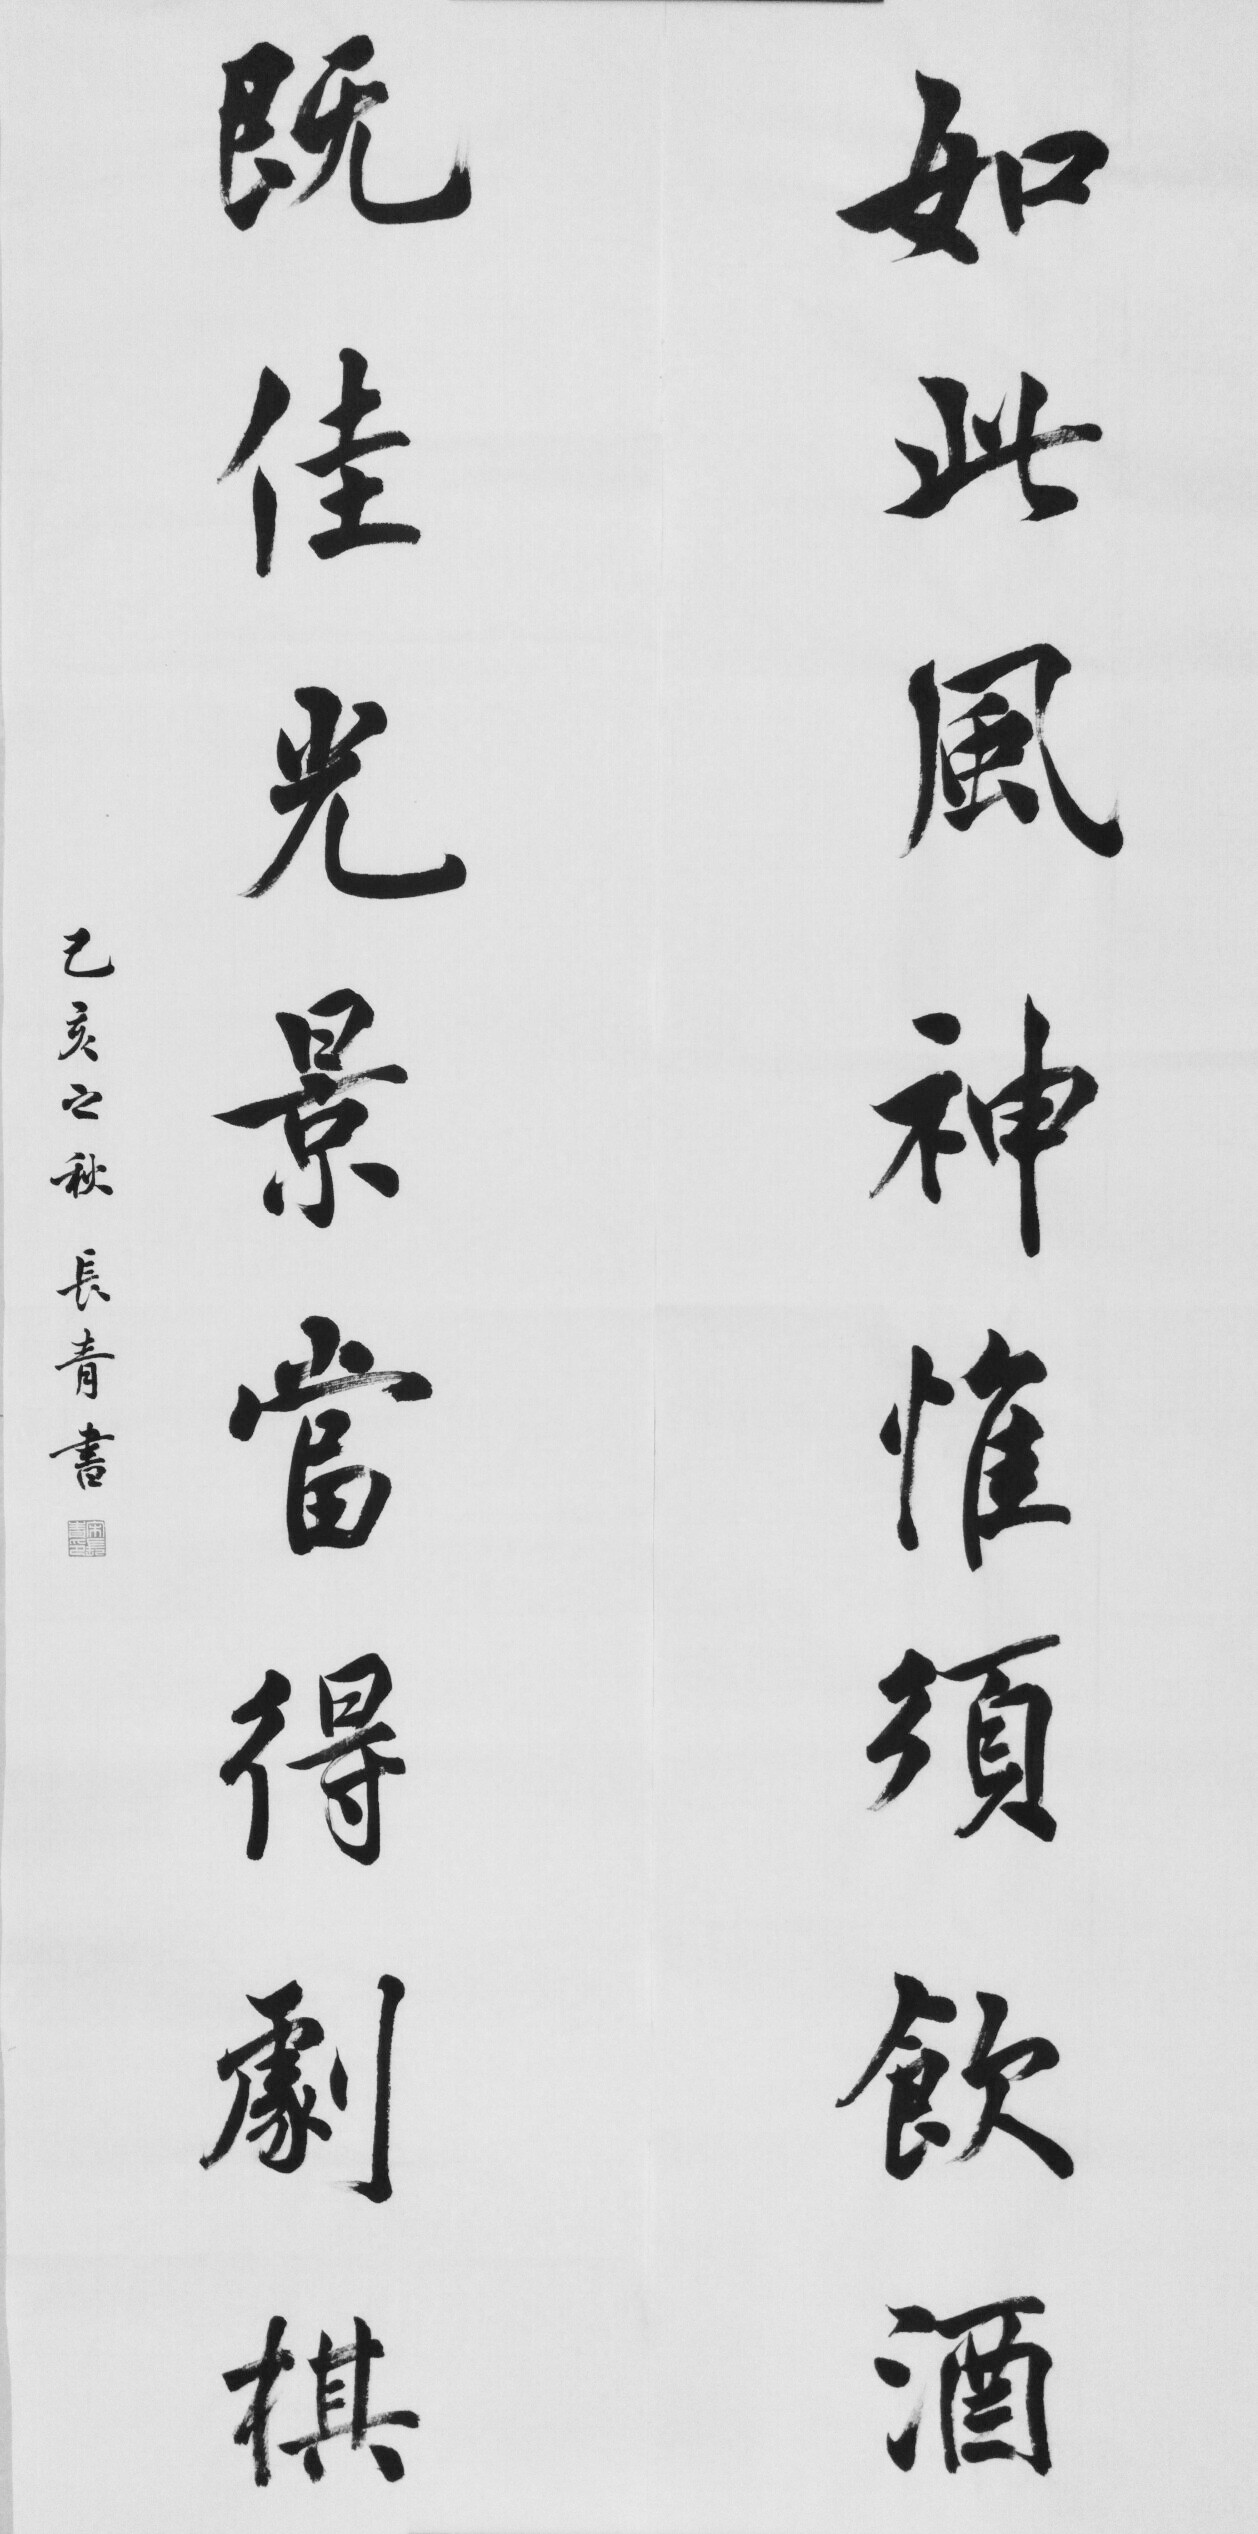 如此風神惟須飲酒
既佳光景當得劇棋
己亥之秋 長青書